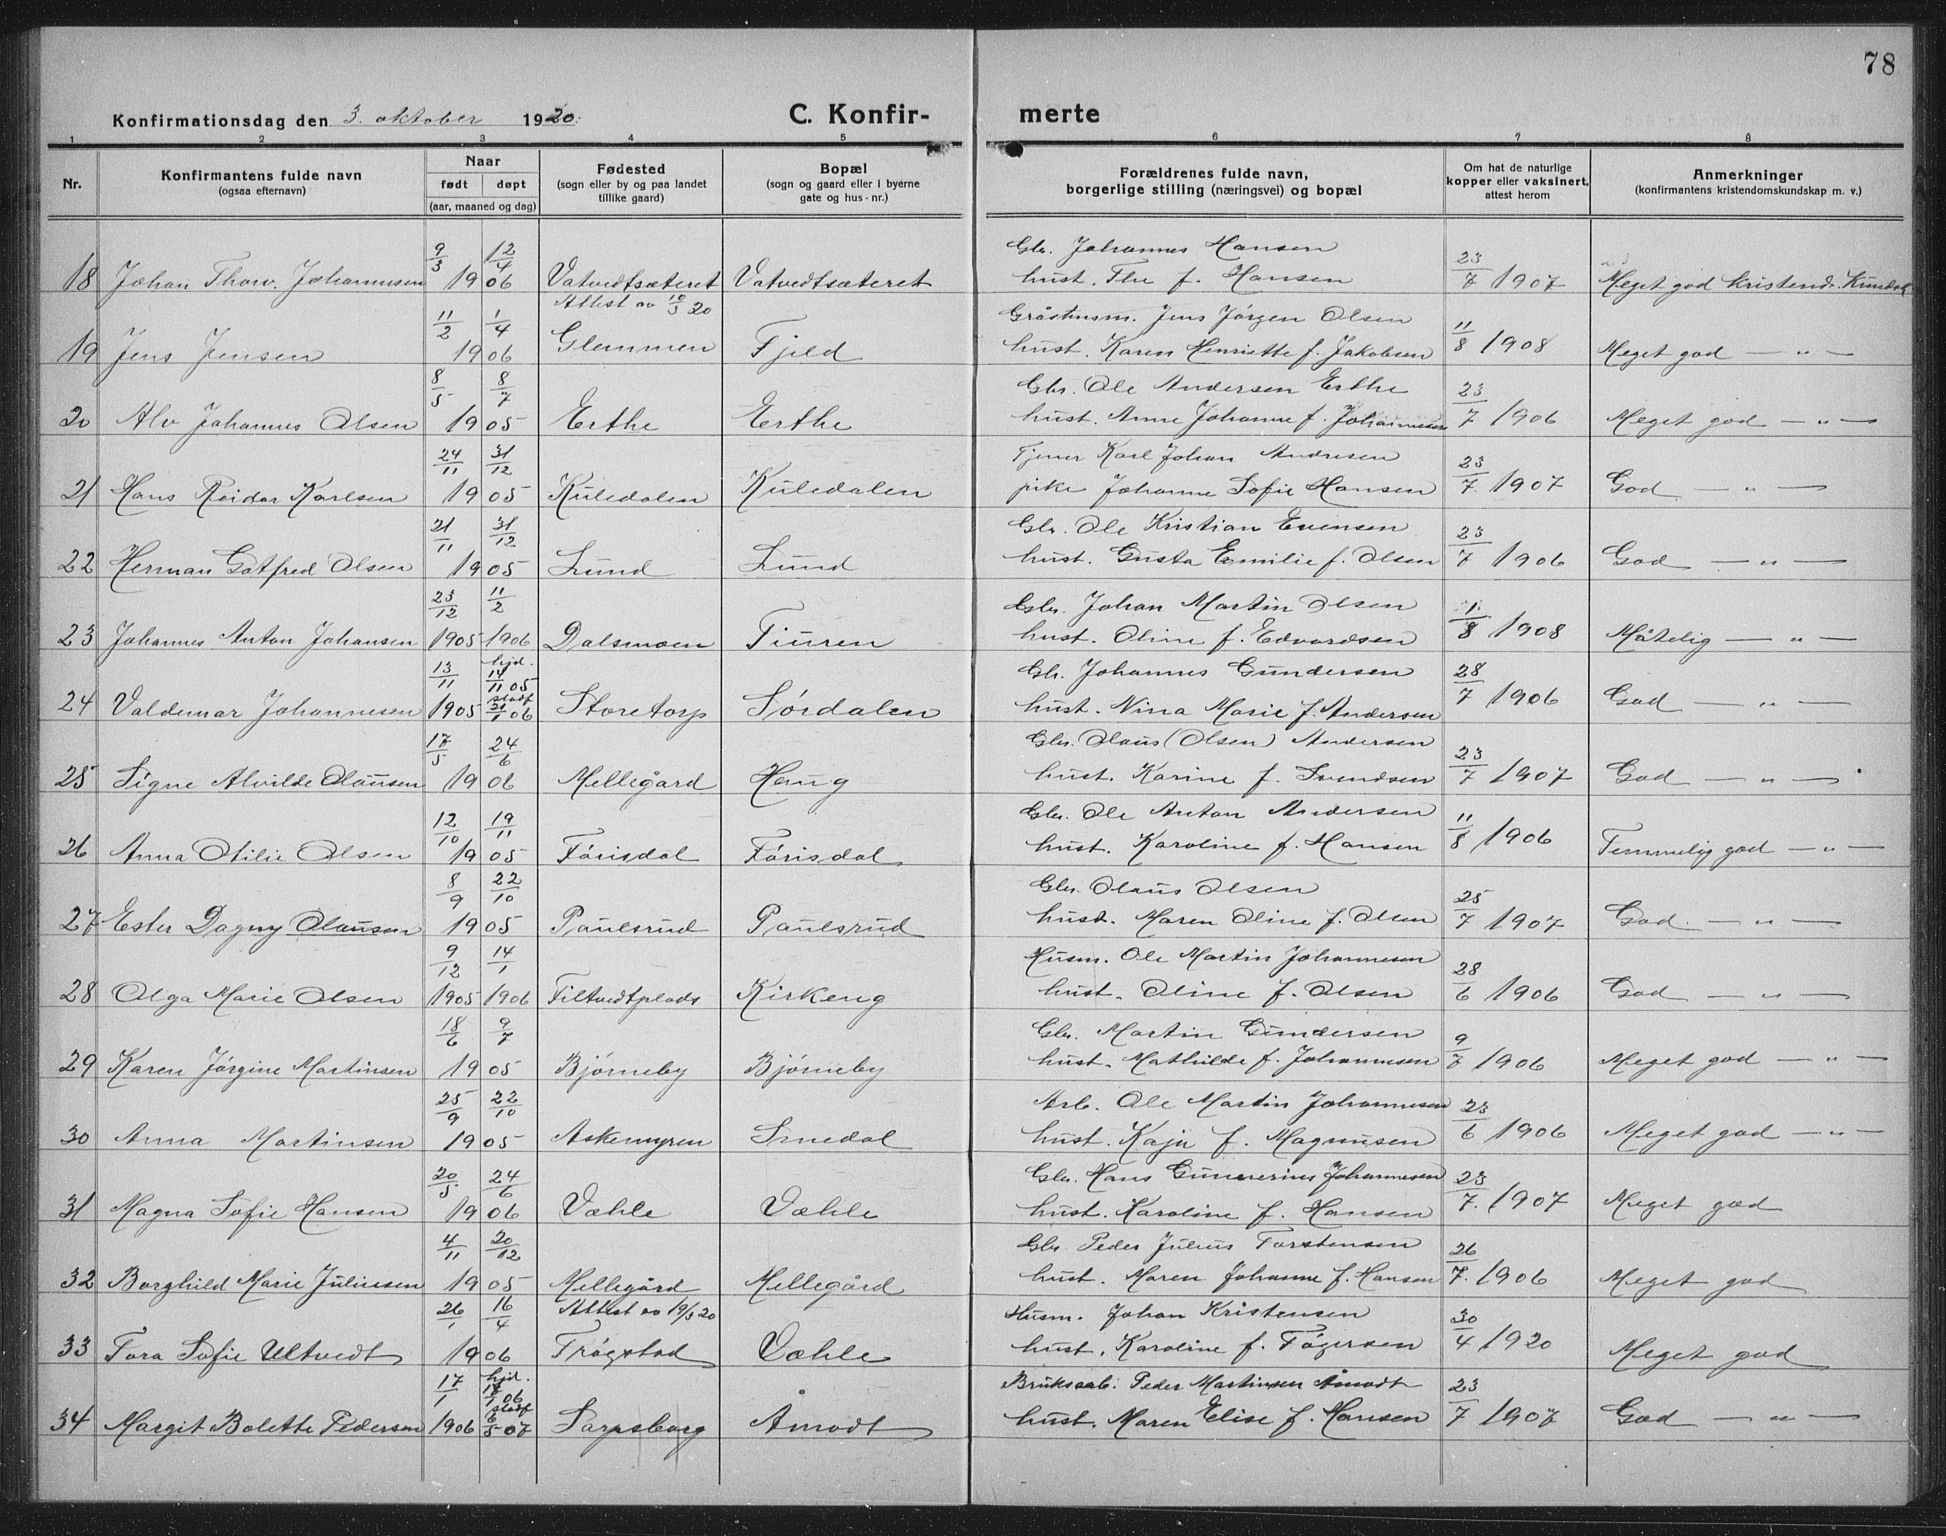 78
Konfirmationsdag den 3. oktober 1920.
C. Konfirmerte
1 2 3 4 5 6 7 8
Nr.
Konfirmantens fulde navn (ogsaa efternavn)
Naar født døpt (aar, maaned og dag)
Fødested (sogn eller by og paa landet tillike gaard)
Bopæl (sogn og gaard eller i byerne gate og hus-nr.)
Forældrenes fulde navn, borgerlige stilling (næringsvei) og bopæl
Om hat de naturlige kopper eller vaksinert, attest herom
Anmerkninger (konfirmantens kristendomskundskap m. v.)
18 Johan Thorv. Johannesen 9/3 12/4 1906 Vatvedtsæteret Vatvedtsæteret Gbr. Johannes Hansen hust. f. Hansen 23/7 1907 Meget god Kristend. Kundsk
19 Jens Jensen 11/2 1/4 1906 Attest av 10/3 20 Glemmen Fjeld Gråstensm. Jens Jørgen Olsen hust. Karen Henriette f. Jakobsen 11/8 1908 Meget god — " —
20 Alv Johannes Olsen 8/5 8/7 1905 Erthe Erthe Gbr. Ole Andersen Erthe hust. Anne Johanne f. Johannesen 23/7 1906 Meget god — " —
21 Hans Reidar Karlsen 24/11 31/12 1905 Kuledalen Kuledalen Tjener Karl Johan Andresen pike Johanne Sofie Hansen 23/7 1907 God — " —
22 Herman Gotfred Olsen 21/11 31/12 1905 Lund Lund Gbr. Ole Kristian Evensen hust. Gusta Emilie f. Olsen 23/7 1906 God — " —
23 Johannes Anton Johansen 23/12 1905 11/2 1906 Dalsmoen Tiuren Gbr. Johan Martin Olsen hust. Oline f. Edvardsen 1/8 1908 Måtelig — " —
24 Valdemar Johannesen 13/11 1905 hjd. 14/11 05 stadf 21/1 06 Storetorp Sørdalen Gbr. Johannes Gundersen hust. Nina Marie f. Andersen 28/7 1906 God — " —
25 Signe Alvilde Olaussen 17/5 24/6 1906 Mellegård Haug Gbr. Olaus (Olsen) Andersen hust. Karine f. Svendsen 23/7 1907 God — " —
26 Anna Otilie Olsen 12/10 19/11 1905 Førisdal Førisdal Gbr. Ole Anton Andersen hust. Karoline f. Hansen 11/8 1906 Temmelig god — " —
27 Ester Dagny Olaussen 8/9 22/10 1905 Paulsrud Paulsrud Gbr. Olaus Olsen hust. Maren Oline f. Olsen 25/7 1907 God — " —
28 Olga Marie Olsen 9/12 1905 14/1 1906 Tiltvedtplads Kirkeng Husm. Ole Martin Johannesen hust. Oline f. Olsen 28/6 1906 God — " —
29 Karen Jørgine Martinsen 18/6 9/7 1905 Bjørneby Bjørneby Gbr. Martin Gundersen hust. Mathilde f. Johannesen 9/7 1906 Meget god — " —
30 Anna Martinsen 25/9 22/10 1905 Askemyren Smedal Arb. Ole Martin Johannesen hust. Kaja f. Magnusen 23/6 1906 Meget god — " —
31 Magna Sofie Hansen 20/5 24/6 1906 Væhle Væhle Gbr. Hans Gunnerius Johannesen hust. Karoline f. Hansen 23/7. 1907 Meget god
32 Borghild Marie Juliussen 4/11 20/12 1905 Mellegård Mellegård Gbr Peder Julius Torstensen hust. Maren Johanne f. Hansen 26/7. 1906 Meget god
33 Tora Sofie Ultvedt 26/1 16/4 1906 Attest av 19/3 20 Trøgstad Væhle Husm. Johan Kristensen hust. Karoline f. Tøgersen 30/4 1920 Meget god
34 Margit Bolette Pedersen 17/1 1906 hjd. 17/1 06 stadf 6/5 07 Sarpsborg Åmodt Bruksarb. Peder Martinsen Åmodt hust. Maren Elise f. Hansen 23/7 1907 God — " —